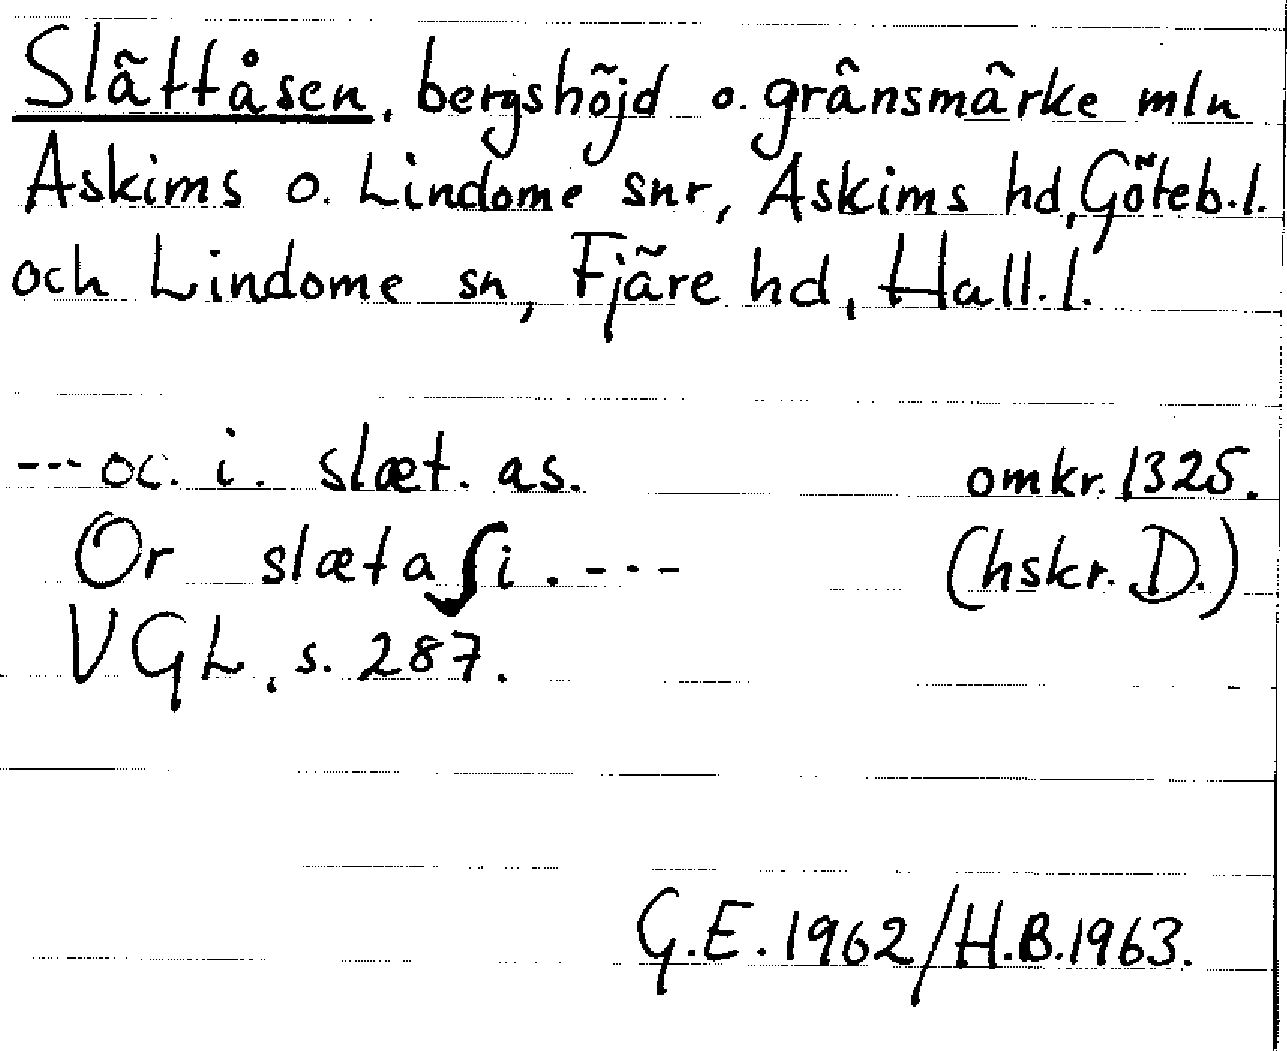 Slättåsen, bergshöjd o. gränsmärke mln
Askims o. Lindome snr, Askims hd, Göteb. l.
och Lindome sn, Fjäre hd, Hall. l.
---oc. i. slæt. as. omkr. 1325.
Or slætaſi. --- (hskr. D.)
VGL, s. 287.
G.E. 1962/H.B. 1963.